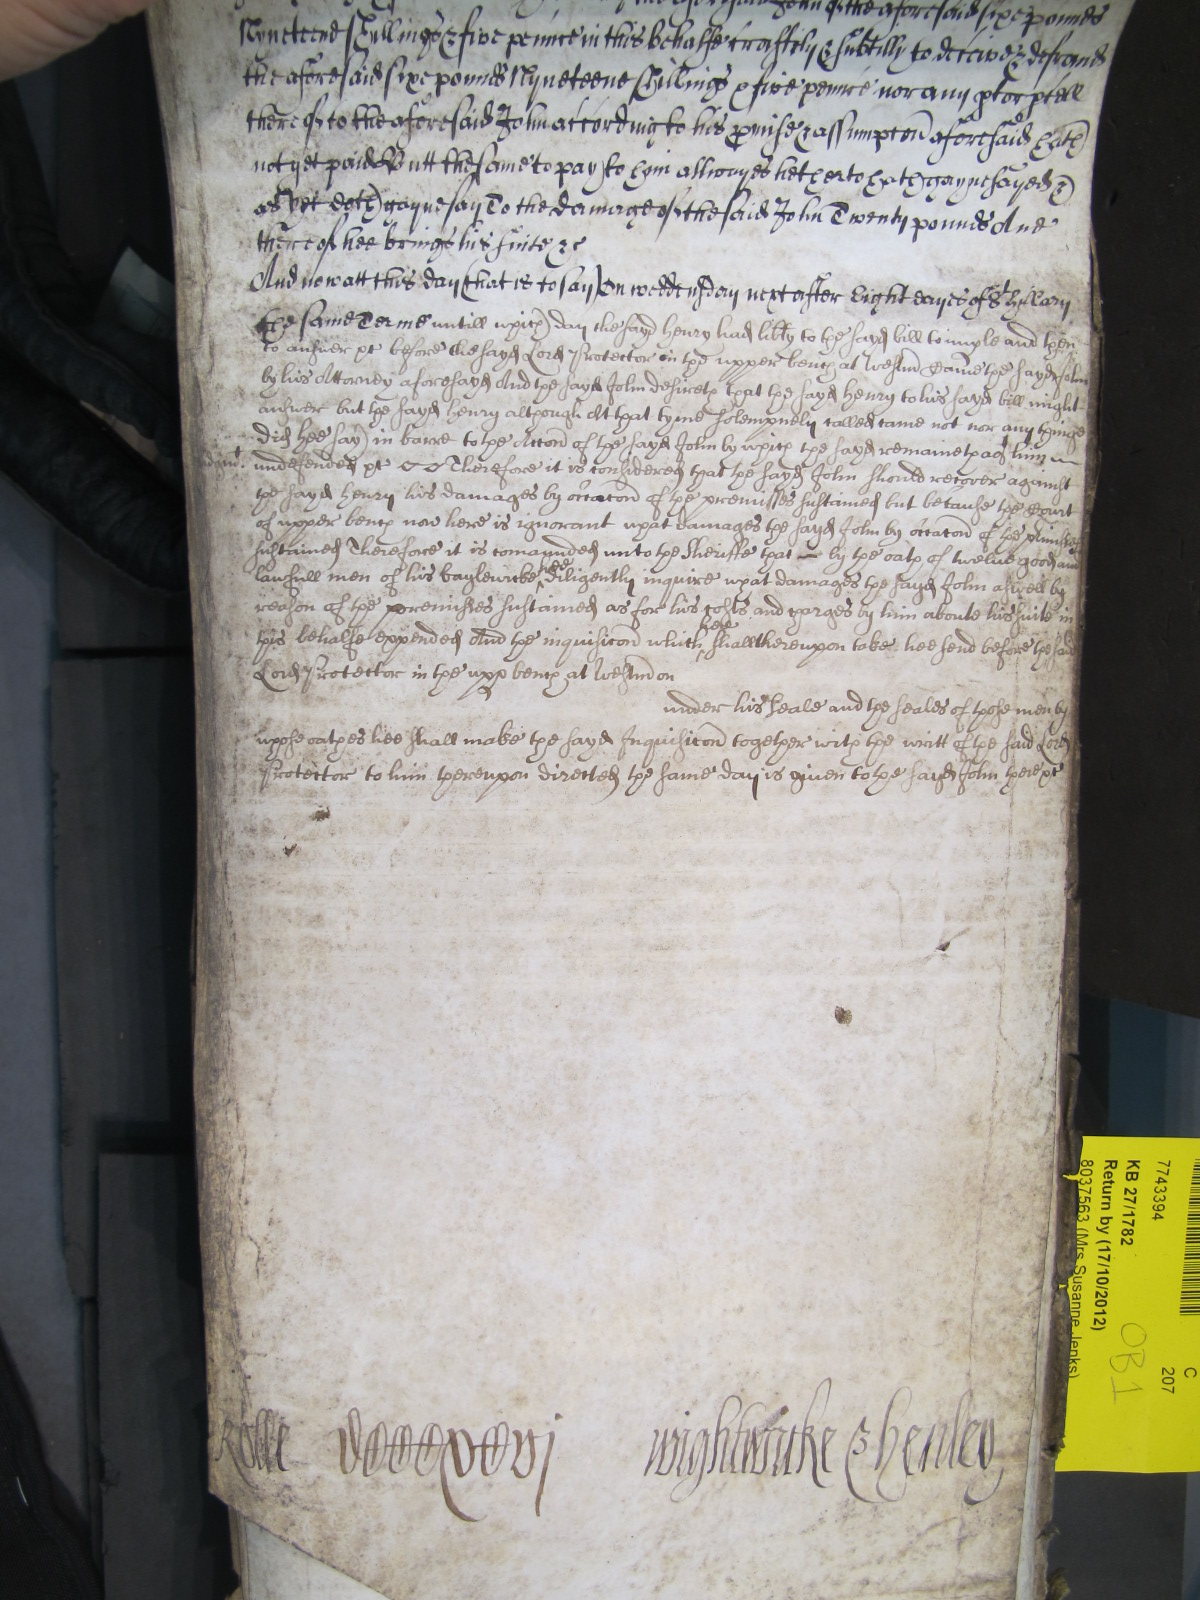 the aforesaid John of the aforesaid sixe pounds
Nyneteene shillings & five pennce in this behalfe craftely & subtilly to deceive & defraud
the aforesaid sixe pounds Nyneteene shillings & five pennce nor any
thereof to the aforesaid John according to his pmise & assumpcon aforesaid hath
not yet paid Butt the same to pay to hym allwayes hetherto hath gaynesayed &
as yet doth gaynesay To the damage of the said John Twenty pounds And
thereof hee brings his suite &c
And now att this day (that is to say) On weddensday next after Eight dayes of St hillary
the same Terme untill which day the sayd henry had libty to the sayd bill to imple and then
to answer &c before the sayd Lord Protector in the upper bench at Westmr Came the sayd John
by his Attorney aforesayd And the sayd John desireth that the sayd henry to his sayd bill might
answer but the sayd henry although At that tyme solempnely called came not nor any thinge
did hee say in barre to the Accon of the sayd John by which the sayd remaineth agt him
undefended &c Therefore it is considered that the sayd John should recover against
the sayd henry his damages by occacon of the premisses sustained but because the Court
of upper bench now here is ignorant what damages the sayd John by occacon of the pmisses
sustained Therefore it is comaunded unto the Sheriffe that by the oath of twelve good and
lawfull men of his baylewicke hee diligently inquire what damages the sayd John aswell by
reason of the premisses sustained as for his costs and charges by him aboute his suite in
this behalfe expended And the inquisicon which hee shall thereupon take hee send before the said
Lord Protector in the upp bench at Westm on
under his seale and the seales of those men by
whose oathes hee shall make the sayd Inquisicon together with the writt of the said Lord
Protector to him thereupon directed the same day is given to the sayd John there &c
Rolle wightwicke & henley
7743394
KB 27/1782
Return by (17/10/2012)
8037563 (Mrs Susanne Jenks)
C
207
OB1